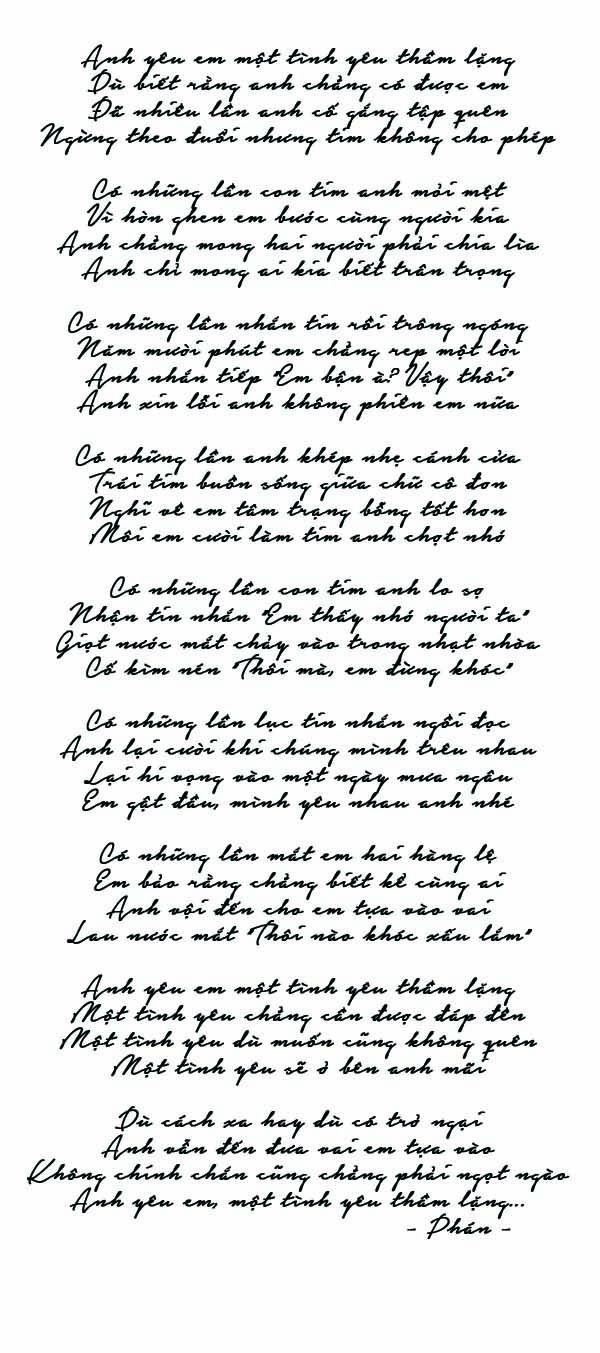 Anh yêu em một tình yêu thầm lặng
Dù biết rằng anh chẳng có được em
Đã nhiều lần anh cố gắng tập quên
Ngừng theo đuổi nhưng tim không cho phép
Có những lần con tim anh mỏi mệt
Vì hờn ghen em bước cùng người kia
Anh chẳng mong hai người phải chia lìa
Anh chỉ mong ai kia biết trân trọng
Có những lần nhắn tin rồi trông ngóng
Năm mười phút em chẳng rep một lời
Anh nhắn tiếp "Em bận à? Vậy thôi"
Anh xin lỗi anh không phiền em nữa
Có những lần anh khép nhẹ cánh cửa
Trái tim buồn sống giữa chữ cô đơn
Nghĩ về em tâm trạng bỗng tốt hơn
Môi em cười làm tim anh chợt nhớ
Có những lần con tim anh lo sợ
Nhận tin nhắn "Em thấy nhớ người ta"
Giọt nước mắt chảy vào trong nhạt nhòa
Cố kìm nén "Thôi mà, em đừng khóc"
Có những lần lục tin nhắn ngồi đọc
Anh lại cười khi chúng mình trêu nhau
Lại hi vọng vào một ngày mưa ngâu
Em gật đầu, mình yêu nhau anh nhé
Có những lần mắt em hai hàng lệ
Em bảo rằng chẳng biết kể cùng ai
Anh vội đến cho em tựa vào vai
Lau nước mắt "Thôi nào khóc xấu lắm"
Anh yêu em một tình yêu thầm lặng
Một tình yêu chẳng cần được đáp đền
Một tình yêu dù muốn cũng không quên
Một tình yêu sẽ ở bên anh mãi
Dù cách xa hay dù có trở ngại
Anh vẫn đến đưa vai em tựa vào
Không chính chắn cũng chẳng phải ngọt ngào
Anh yêu em, một tình yêu thầm lặng...
- Phán -